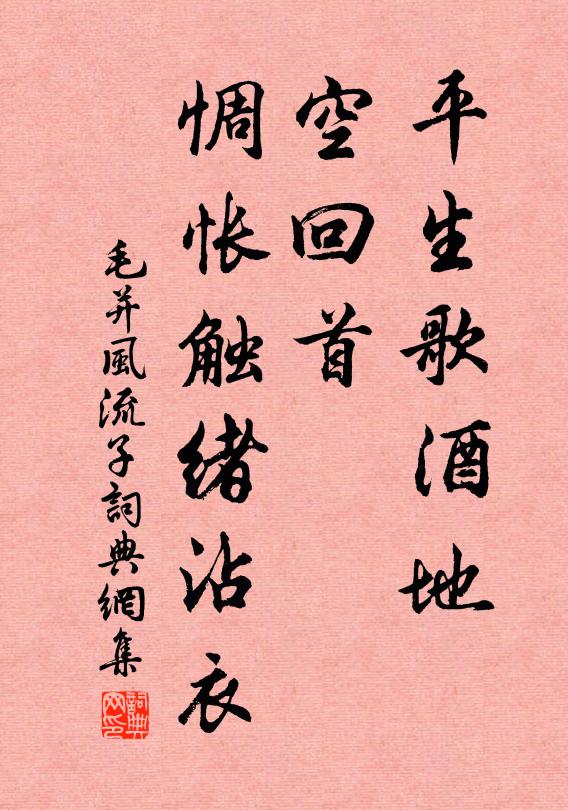 平生歌酒地
空回首
惆怅触绪沾衣
毛并風流子詞典網集
詞典网印